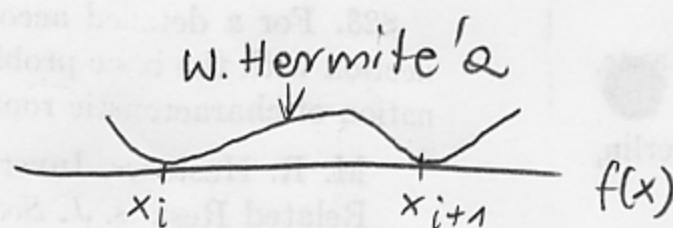 W. Hermite'a
x_i x_{i+1} f(x)